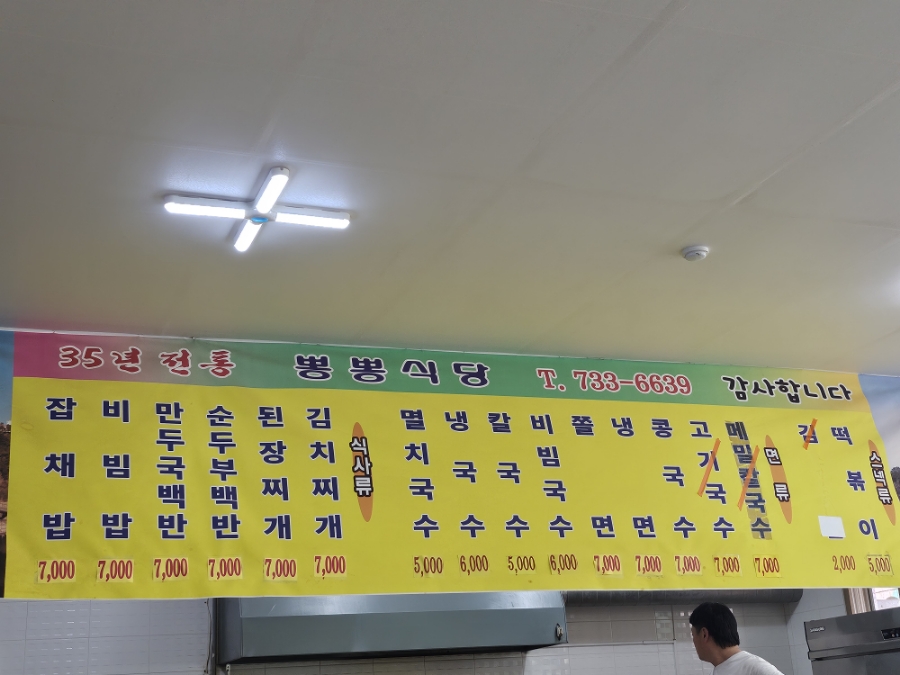 35년 전통 뽕뽕식당 T. 733-6639 감사합니다
스낵류
떡볶이 5,000
김 2,000
면류
메밀칼국수 7,000
고기국수 7,000
콩국수 7,000
냉면 7,000
쫄면 7,000
비빔국수 6,000
칼국수 5,000
냉국수 6,000
멸치국수 5,000
식사류
김치찌개 7,000
된장찌개 7,000
순두부백반 7,000
만두국백반 7,000
비빔밥 7,000
잡채밥 7,000
SAMSUNG